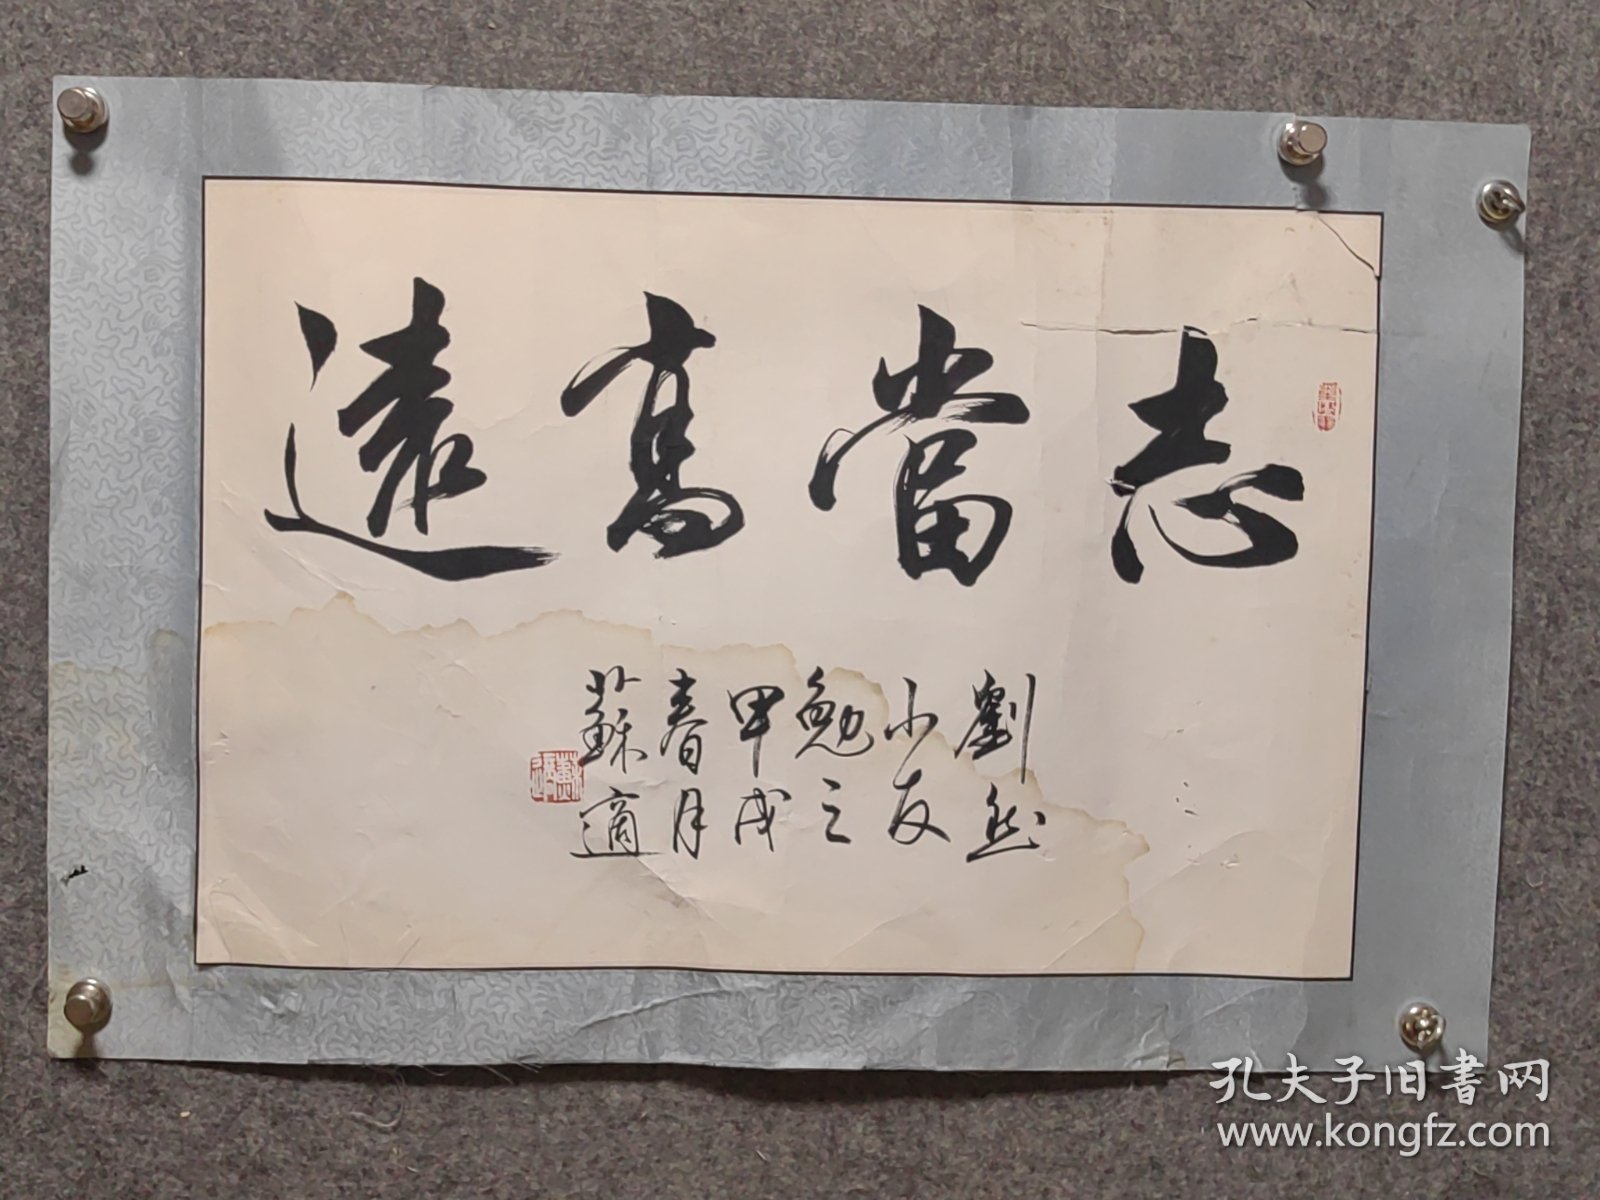 志當高遠
劉然
小友
勉之
甲戌
春月
蘇適
孔夫子旧書网
www.kongfz.com